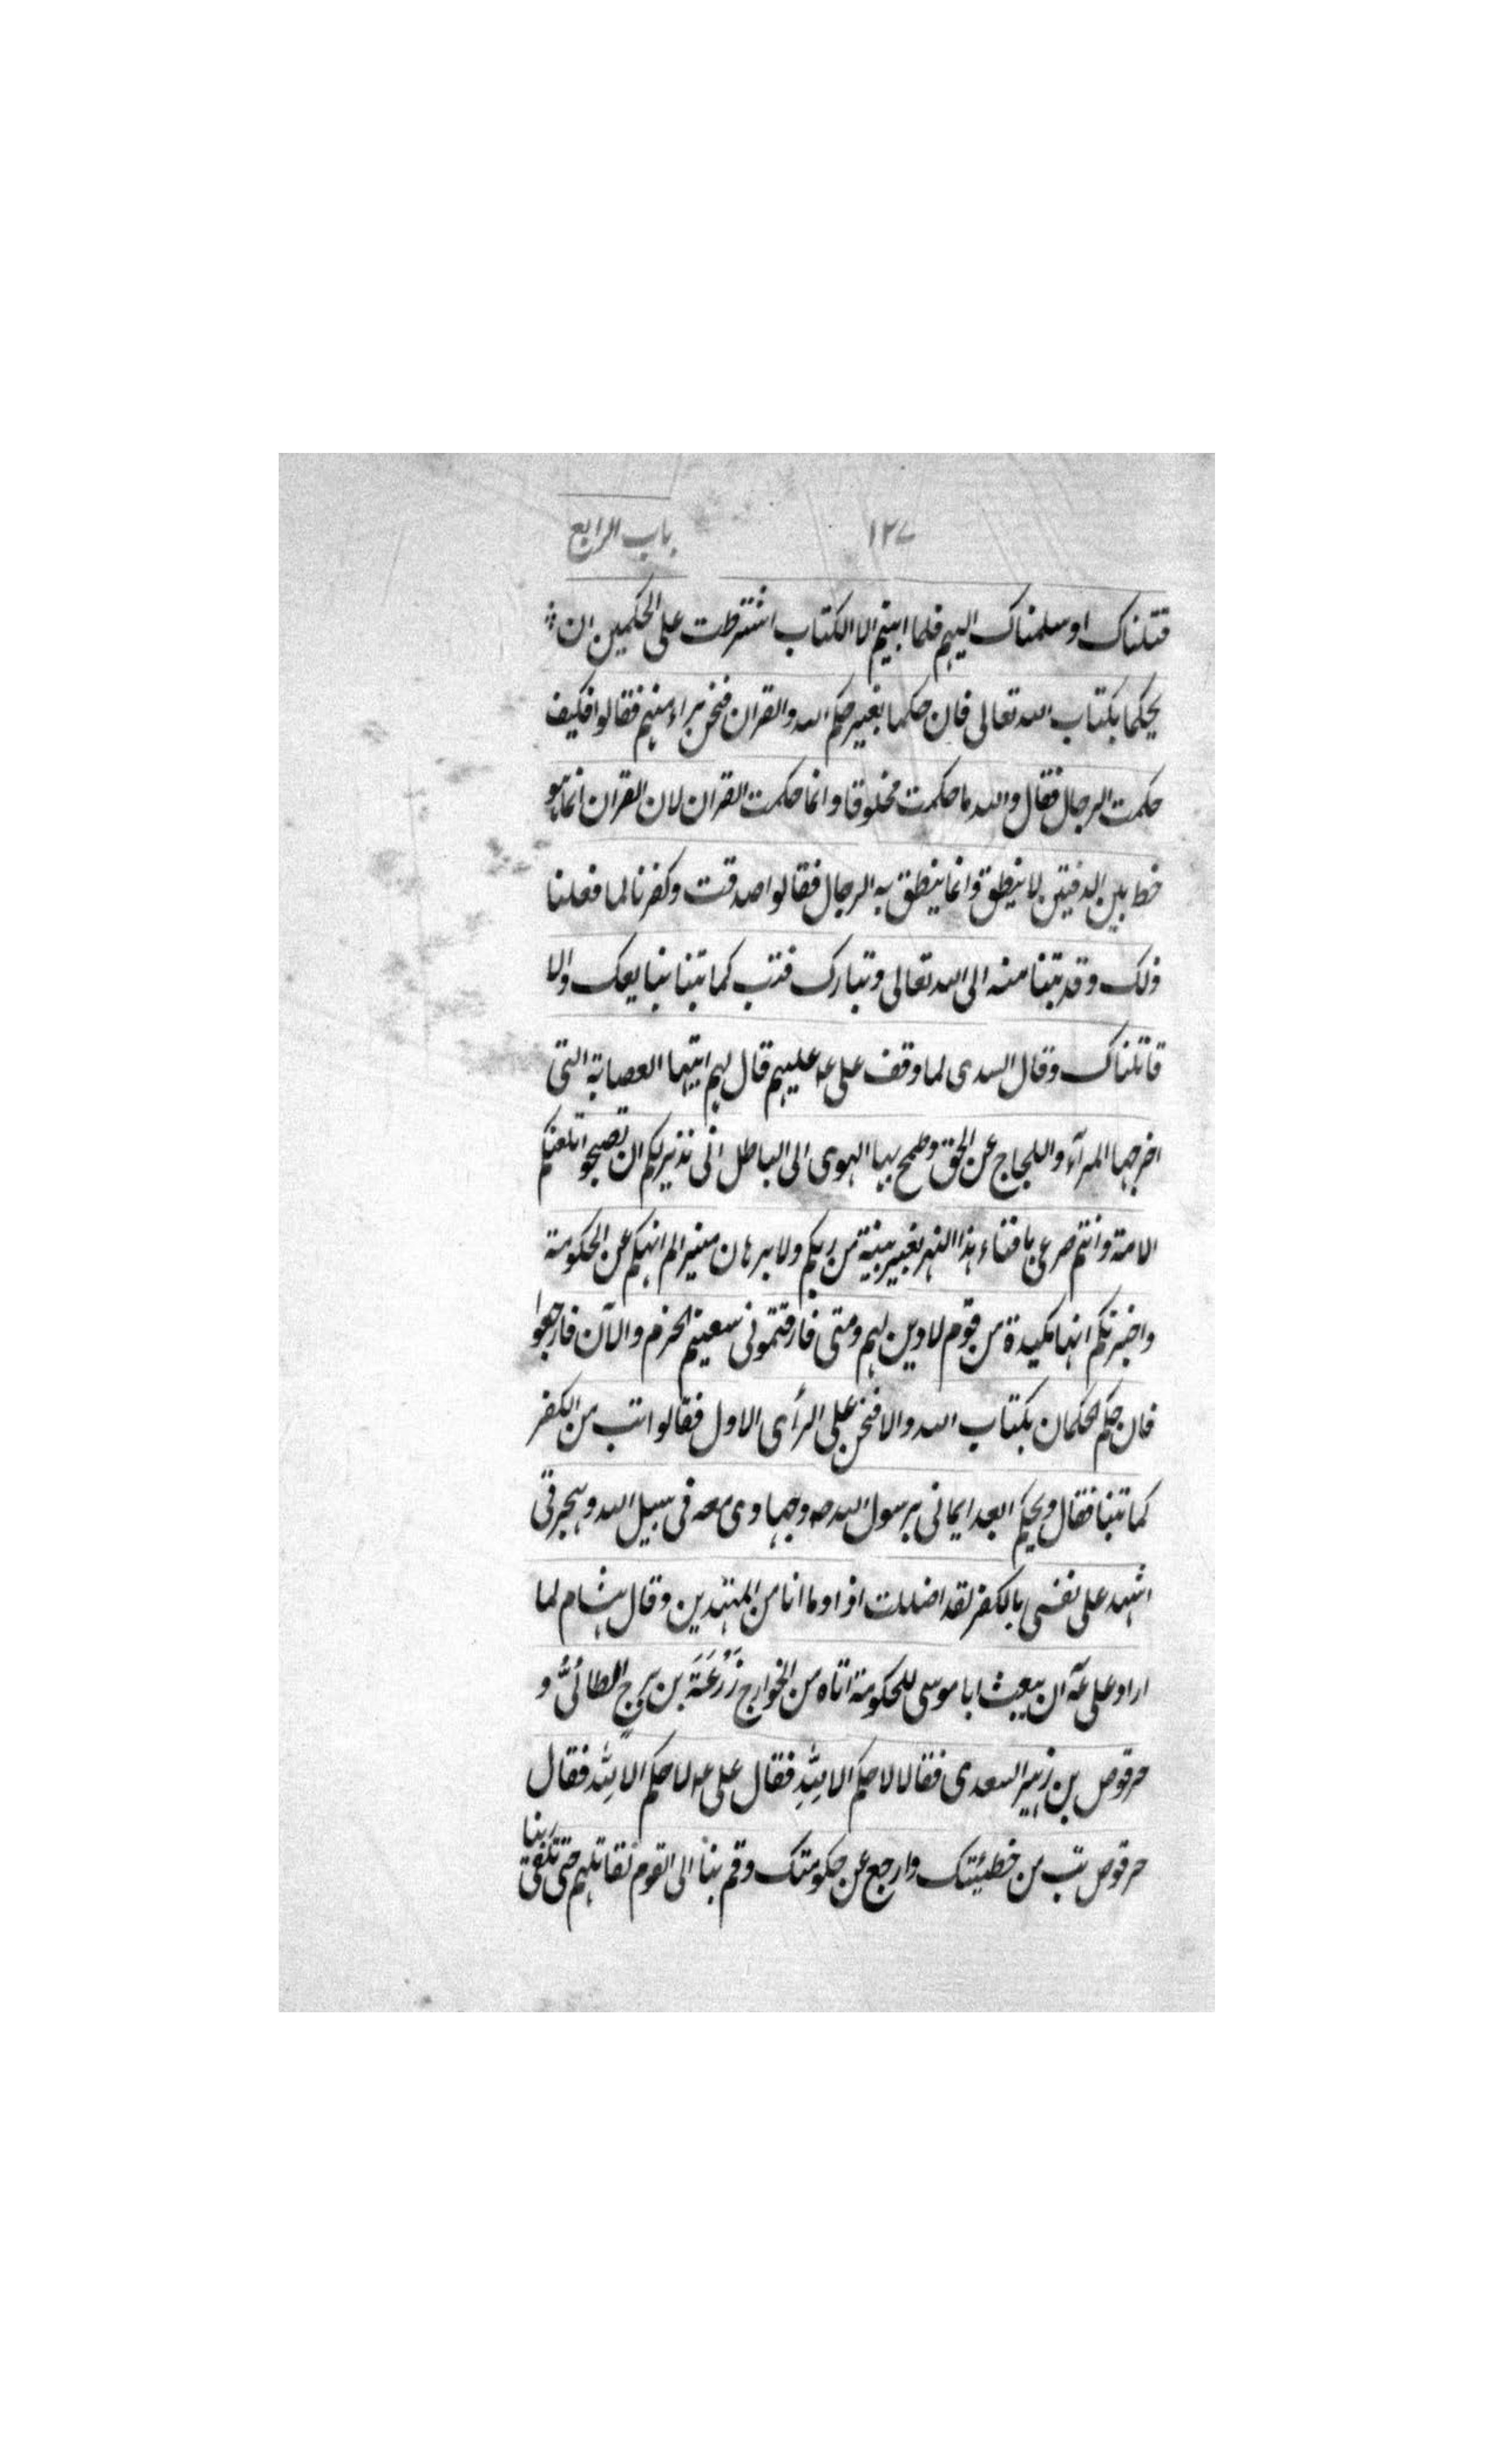 ١٢٧ باب الرابع
قتلناك او سلمناك اليهم فلما ابيتم الا الكتاب اشترطت على الحكمين ان
يحكما بكتاب الله تعالى فان حكما بغير حكم الله والقران فنحن براء منهم فقالوا فكيف
حكمت الرجال فقال والله ما حكمت مخلوقا وانما حكمت القران لان القران انما هو
خط بين الدفتين لا ينطق وانما ينطق به الرجال فقالوا صدقت وكفرنا لما فعلنا
ذلك وقد تبنا منه الى الله تعالى وتبارك فتب كما تبنا نبايعك والا
قاتلناك وقال السدى لما وقف على عه عليهم قال لهم ايتها العصابة التى
اخرجها المرآء واللجاج عن الحق وطمح بها الهوى الى الباطل انى نذير لكم ان تصبحوا تلعنكم
الامة وانتم صرعى بافناء هذا النهر بغير بينة من ربكم ولا برهان مبين الم انهكم عن الحكومة
واخبرتكم انها مكيدة من قوم لا دين لهم ومتى فارقتمونى سعيتم الحزم والآن فارجعوا
فان حكم الحكمان بكتاب الله والا فنحن على الرأى الاول فقالوا تب من الكفر
كما تبنا فقال ويحكم ابعد ايمانى برسول الله صه وجهادى معه فى سبيل الله وهجرتى
اشهد على نفسى بالكفر لقد ضللت اذا وما انا من المهتدين وقال هشام لما
اراد على عه ان يبعث ابا موسى للحكومة اتاه من الخوارج زُرْعَةَ بن برج الطائىُّ و
حرقوص بن زهير السعدى فقالا لا حكم الا لِلّهِ فقال على عه لا حكم الا لِلّه فقال
حرقوص تب من خطيئتك وارجع عن حكومتك وقم بنا الى القوم نقاتلهم حتى نلقى ربنا